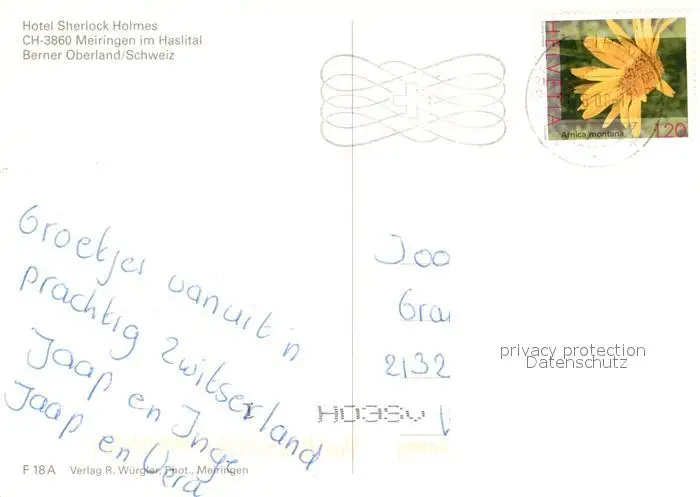 Hotel Sherlock Holmes
CH-3860 Meiringen im Haslital
Berner Oberland/Schweiz
HELVETIA
Arnica montana
120
Groetjes vanuit 'n
prachtig Zwitserland
Jaap en Inge
Jaap en Vera
Joo
Gra
2132
privacy protection
Datenschutz
F 18 A Verlag R. Würgler, Phot., Meiringen